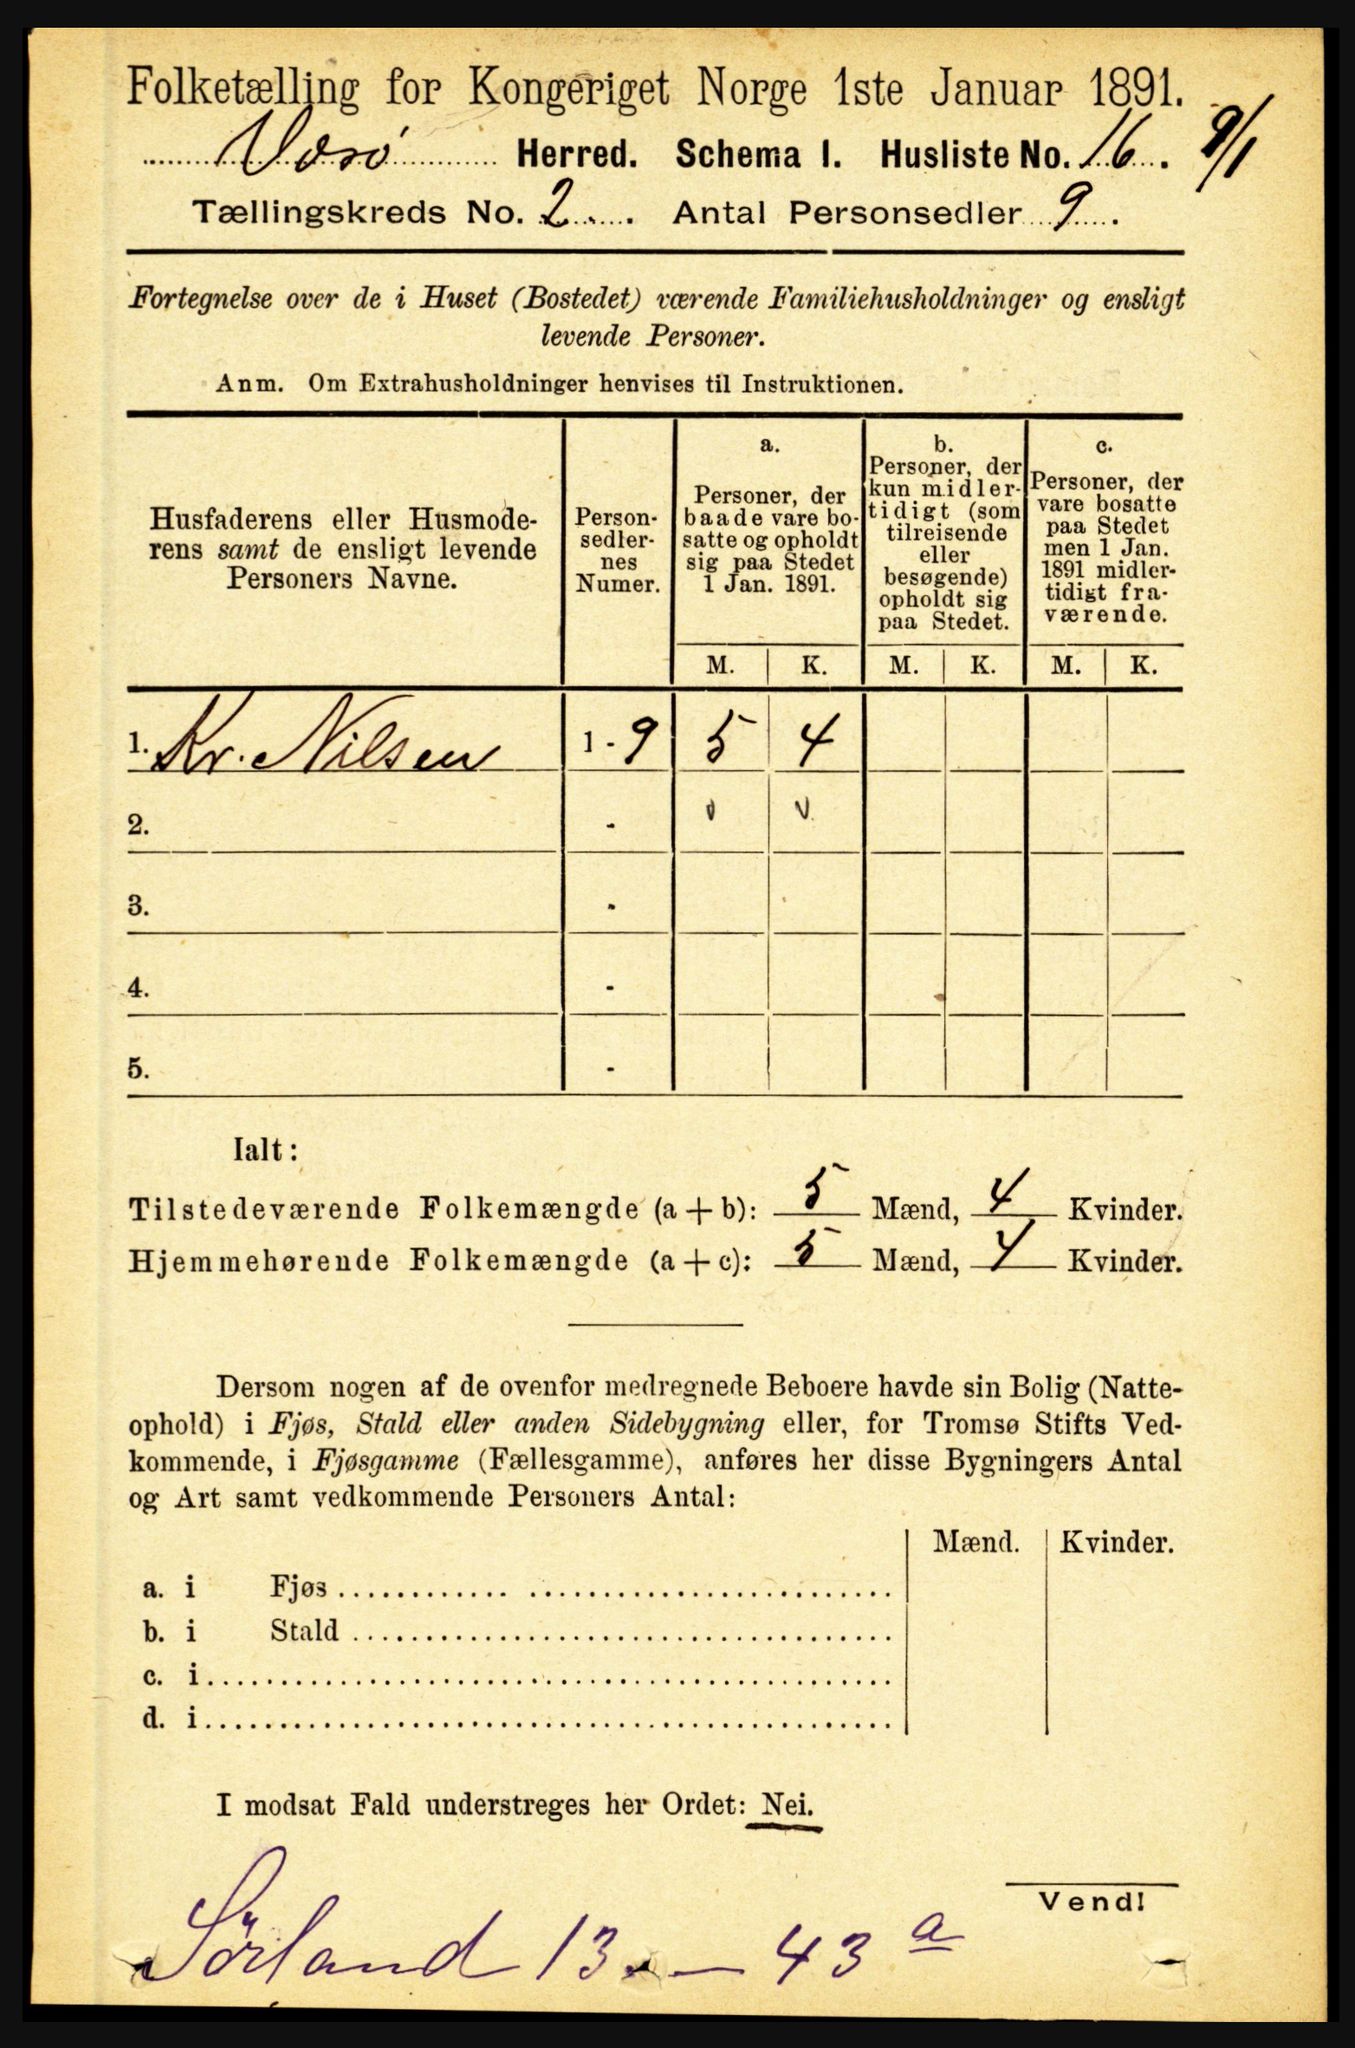 Folketælling for Kongeriget Norge 1ste Januar 1891.
Værø Herred. Schema I. Husliste No. 16. 9/1
Tællingskreds No. 2. Antal Personsedler 9.
Fortegnelse over de i Huset (Bostedet) værende Familiehusholdninger og ensligt
levende Personer.
Anm. Om Extrahusholdninger henvises til Instruktionen.
Husfaderens eller Husmode-
rens samt de ensligt levende
Personers Navne.
Person-
sedler-
nes
Numer.
a.
Personer, der
baade vare bo-
satte og opholdt
sig paa Stedet
1 Jan. 1891.
b.
Personer, der
kun midler-
tidigt (som
tilreisende
eller
besøgende)
opholdt sig
paa Stedet.
c.
Personer, der
vare bosatte
paa Stedet
men 1 Jan.
1891 midler-
tidigt fra-
værende.
M. K. M. K. M. K.
1. Kr. Nilsen 1 - 9 5 4
2. - v v
3. -
4. -
5. -
Ialt:
Tilstedeværende Folkemængde (a + b): 5 Mænd, 4 Kvinder.
Hjemmehørende Folkemængde (a + c): 5 Mænd, 4 Kvinder.
Dersom nogen af de ovenfor medregnede Beboere havde sin Bolig (Natte-
ophold) i Fjøs, Stald eller anden Sidebygning eller, for Tromsø Stifts Ved-
kommende, i Fjøsgamme (Fællesgamme), anføres her disse Bygningers Antal
og Art samt vedkommende Personers Antal:
Mænd. Kvinder.
a. i Fjøs
b. i Stald
c. i
d. i
I modsat Fald understreges her Ordet: Nei.
Vend!
Sörland 13 - 43 a